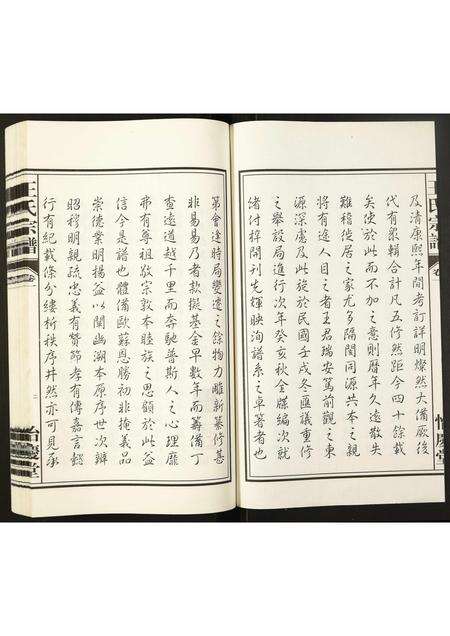 王氏宗譜
卷
及清康熙年間考訂詳明燦然大備厥後
代有彙輯合計凡五修然距今四十餘載
矣使於此而不加之意則曆年久遠散失
難稽徙居之家尤多隔閡同源共本之親
將有途人目之者王君瑞安篤前觀之東
源深慮及此於民國壬戌冬匯議重修
之舉設局進行次年癸亥秋全牒編次就
緒付梓開刊先輝映洵譜系之卓著者也
怡慶堂
王氏宗譜
卷
第會逢時局變遷之餘物力雕新纂修甚
非易易乃者款擬基金早數年而籌備丁
查遠道越千里而奔馳普斯人之心理靡
弗有尊祖敬宗敦本睦族之思願於此益
信今是譜也體備歐蘇恩勝初非掩義品
崇德業明揚益以闡幽溯本原序世次辨
昭穆明親疏忠義有贊節孝有傳嘉言懿
行有紀載條分縷析秩序井然亦可見承
二
怡慶堂